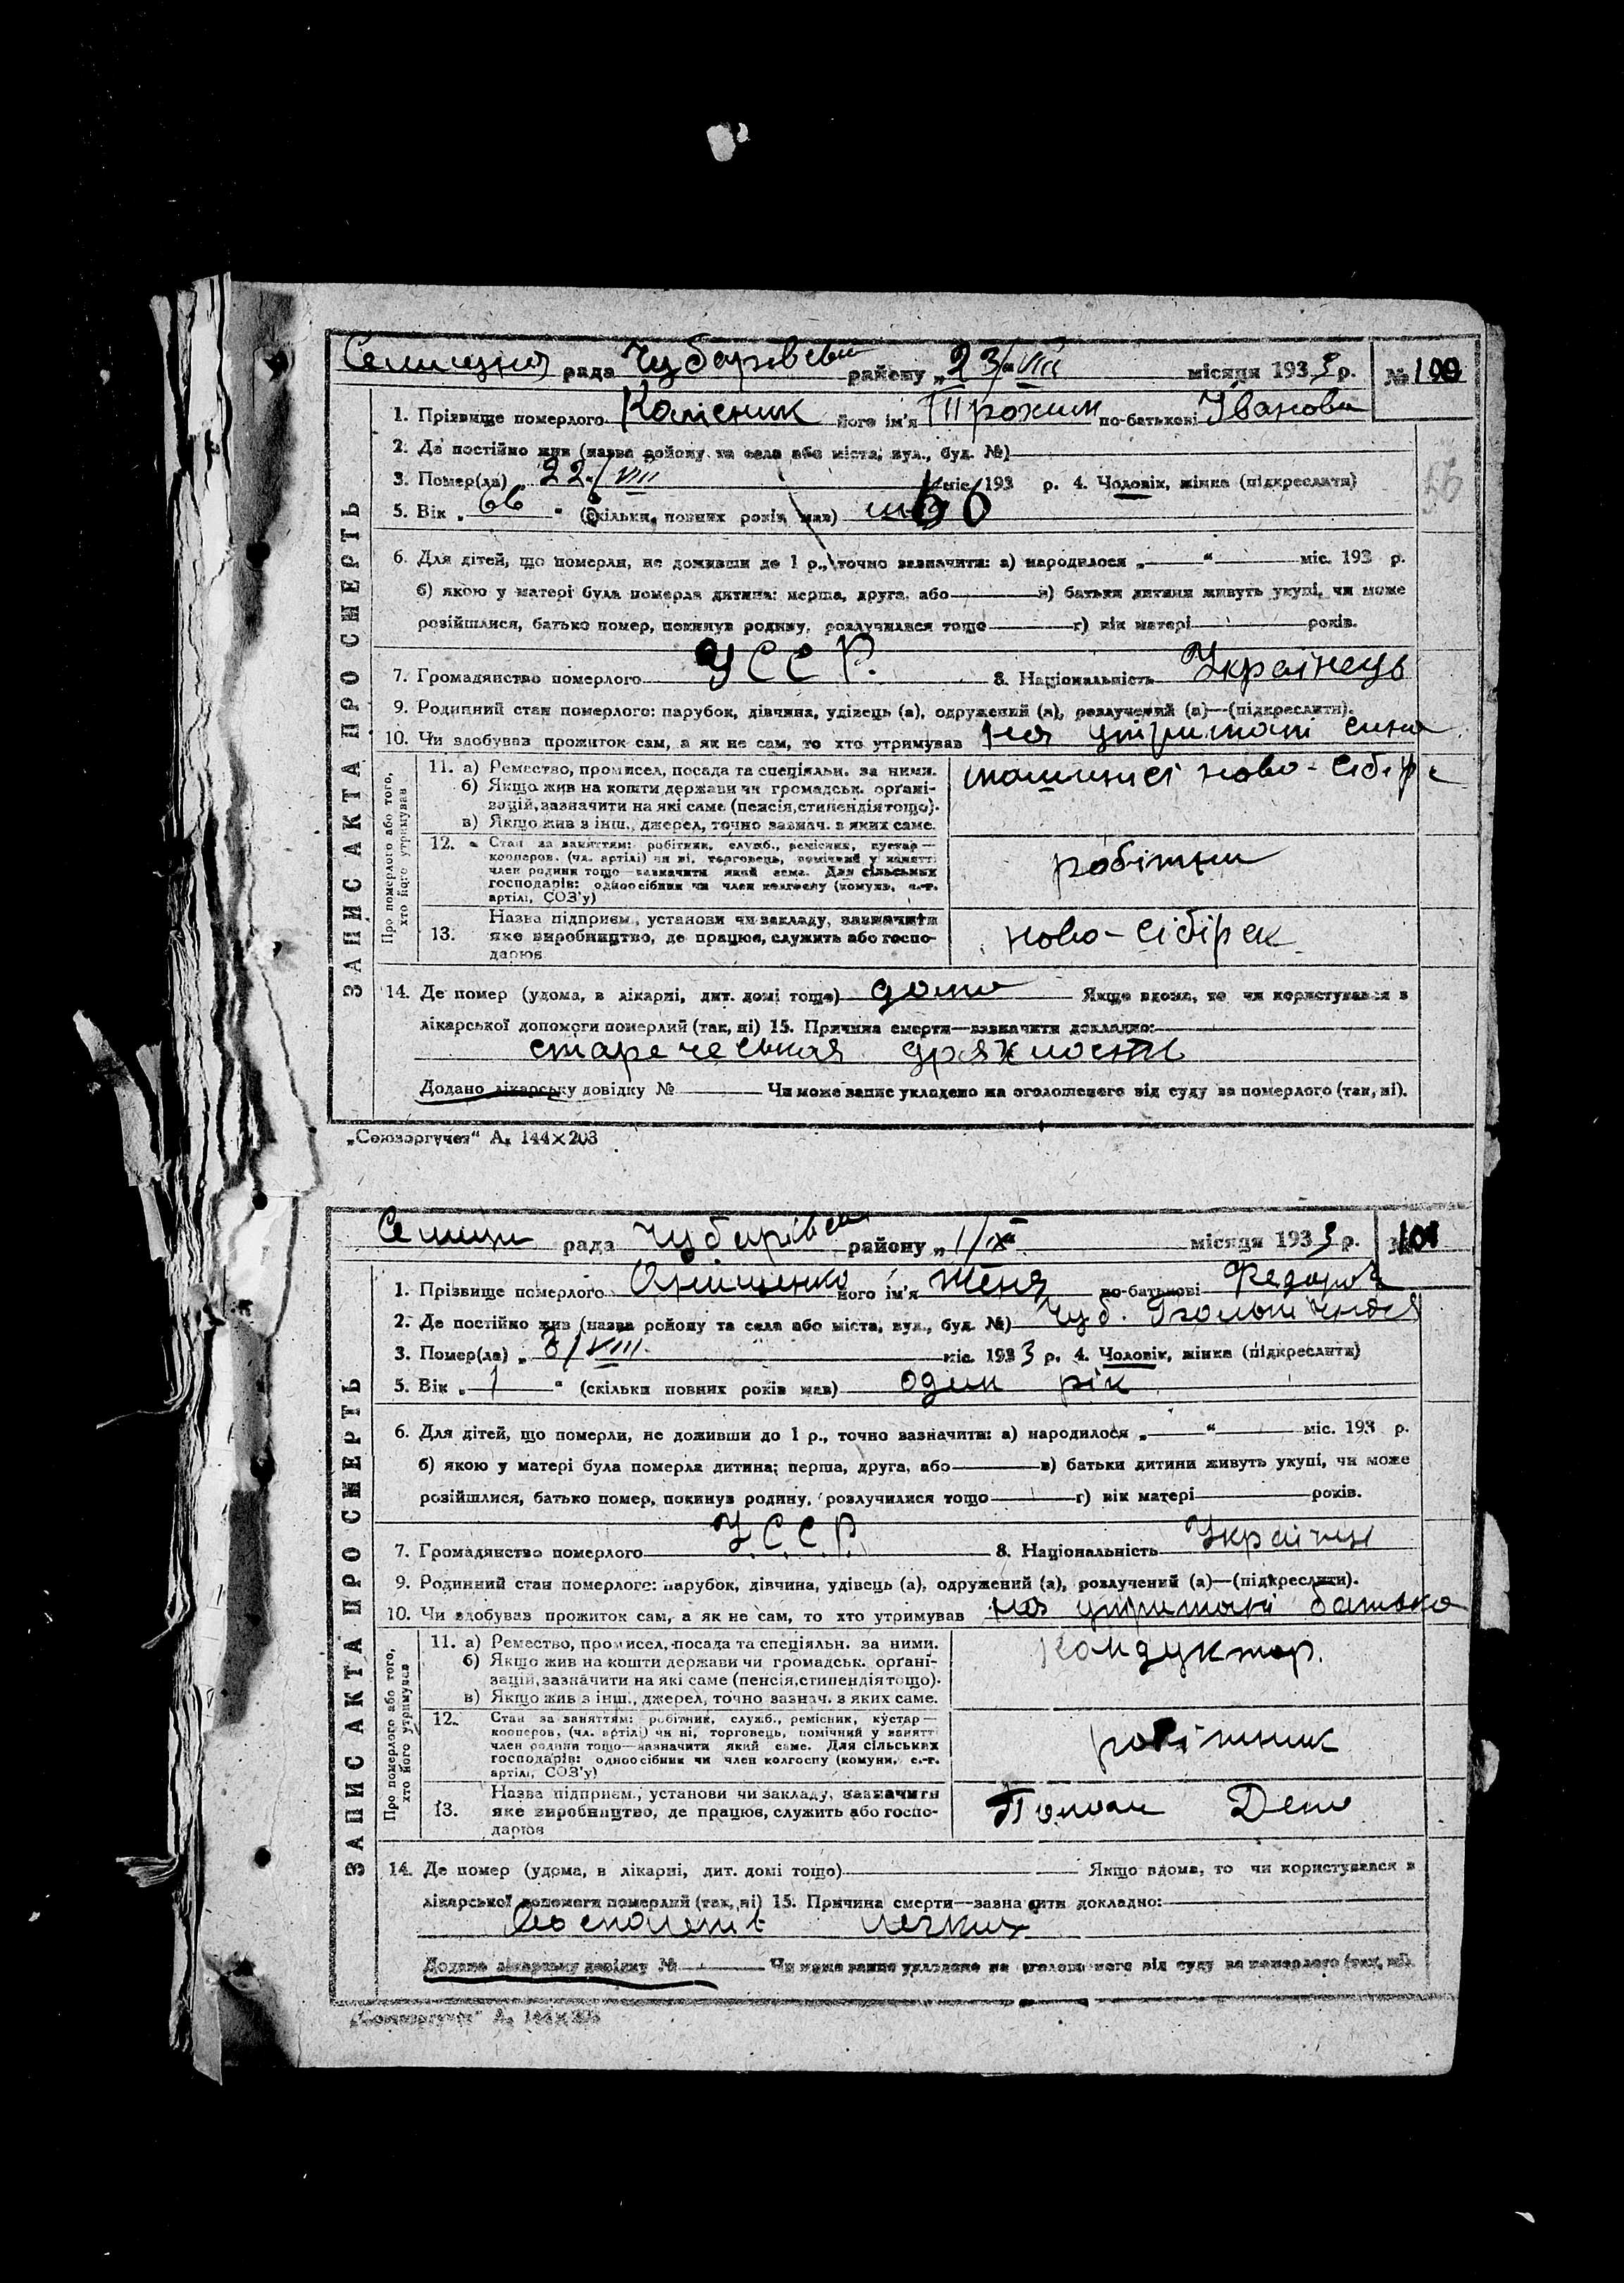 рада Чубарівськ району „23/VIII місяця 1933 р. № 100
ЗАПИС АКТА ПРО СМЕРТЬ
1. Прізвище померлого Колісник його ім'я Трохим по-батькові Іванови
2. Де постійно жив (назва району та села або міста, вул., буд. №)
3. Помер(ла) „ 22/VIII міс. 193 р. 4. Чоловік, жінка (підкреслити)
5. Вік „ 66 " (скільки повних років мав) 66
6. Для дітей, що померли, не доживши до 1 р., точно зазначити: а) народилося „ " міс. 193 р.
б) якою у матері була померла дитина: перша, друга, або в) батьки дитини живуть укупі, чи може
розійшлися, батько помер, покинув родину, розлучилися тощо г) вік матері років.
7. Громадянство померлого УССР. 8. Національність Українець
9. Родинний стан померлого: парубок, дівчина, удівець (а), одружений (а), розлучений (а)—(підкреслити).
10. Чи здобував прожиток сам, а як не сам, то хто утримував на утримані сина
Про померлого або того, хто його утримував
11. а) Ремество, промисел, посада та спеціяльн. за ними.
б) Якщо жив на кошти держави чи громадськ. органі-
зацій, зазначити на які саме (пенсія, стипендія тощо).
в) Якщо жив з інш., джерел, точно зазнач. з яких саме.
машиніст ново-сібірс
12. Стан за заняттям: робітник, служб., ремісник, кустар—
кооперов. (чл. артілі) чи ні, торговець, помічний у занятт
член родини тощо—зазначити який саме. Для сільських
господарів: одноосібник чи член колгоспу (комуни, с.-г.
артілі, СОЗ'у)
робітник
13. Назва підприєм., установи чи закладу, зазначити
яке виробництво, де працює, служить або госпо-
дарює
ново-сібірск
14. Де помер (удома, в лікарні, дит. домі тощо) дома Якщо вдома, то чи користувався з
лікарської допомоги померлий (так, ні) 15. Причина смерти—зазначити докладно:
старческая дряхлость
Додано лікарську довідку № Чи може запис укладено на оголошеного від суду за померлого (так, ні).
„Союзоргучет" А₅ 144×203
рада Чубарівськ району „ 1/IX місяця 1933 р. № 101
ЗАПИС АКТА ПРО СМЕРТЬ
1. Прізвище померлого Онищенко його ім'я Женя по-батькові Федоров
2. Де постійно жив (назва району та села або міста, вул., буд. №) Чуб.
3. Помер(ла) „ 8/VIII. міс. 1933 р. 4. Чоловік, жінка (підкреслити)
5. Вік „ 1 " (скільки повних років мав) один рік
6. Для дітей, що померли, не доживши до 1 р., точно зазначити: а) народилося „ " міс. 193 р.
б) якою у матері була померла дитина; перша, друга, або в) батьки дитини живуть укупі, чи може
розійшлися, батько помер, покинув родину, розлучилися тощо г) вік матері років.
7. Громадянство померлого УССР. 8. Національність
9. Родинний стан померлого: парубок, дівчина, удівець (а), одружений (а), розлучений (а)—(підкреслити).
10. Чи здобував прожиток сам, а як не сам, то хто утримував на утримані батька
Про померлого або того, хто його утримував
11. а) Ремество, промисел, посада та спеціяльн. за ними.
б) Якщо жив на кошти держави чи громадськ. органі-
зацій, зазначити на які саме (пенсія, стипендія тощо).
в) Якщо жив з інш., джерел, точно зазнач. з яких саме.
Кондуктор.
12. Стан за заняттям: робітник, служб., ремісник, кустар—
кооперов. (чл. артілі) чи ні, торговець, помічний у занятт
член родини тощо—зазначити який саме. Для сільських
господарів: одноосібник чи член колгоспу (комуни, с.-г.
артілі, СОЗ'у)
робітник
13. Назва підприєм., установи чи закладу, зазначити
яке виробництво, де працює, служить або госпо-
дарює
Депо
14. Де помер (удома, в лікарні, дит. домі тощо) Якщо вдома, то чи користувався з
лікарської допомоги померлий (так, ні) 15. Причина смерти—зазначити докладно:
легких
Додано лікарську довідку № Чи може запис укладено на оголошеного від суду за померлого (так, ні).
„Союзоргучет" А₅ 144×203